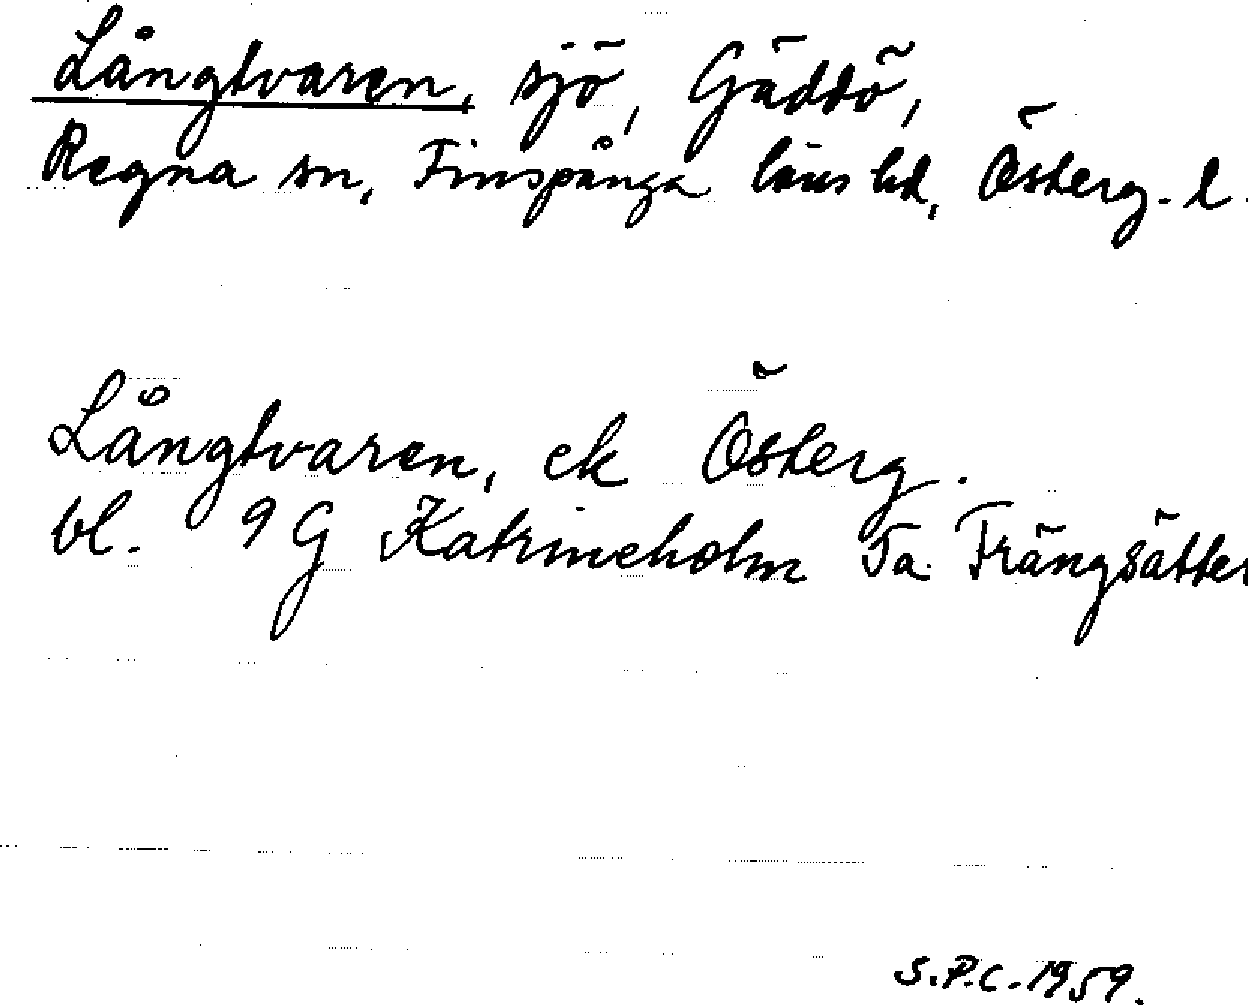 Långtvaren, sjö, Gäddö,
Regna sn, Finspånga läns hd, Österg. l.
Långtvaren, ek Österg.
bl. 9 G Katrineholm Ta Trängsätter
S.P.C. 1959.